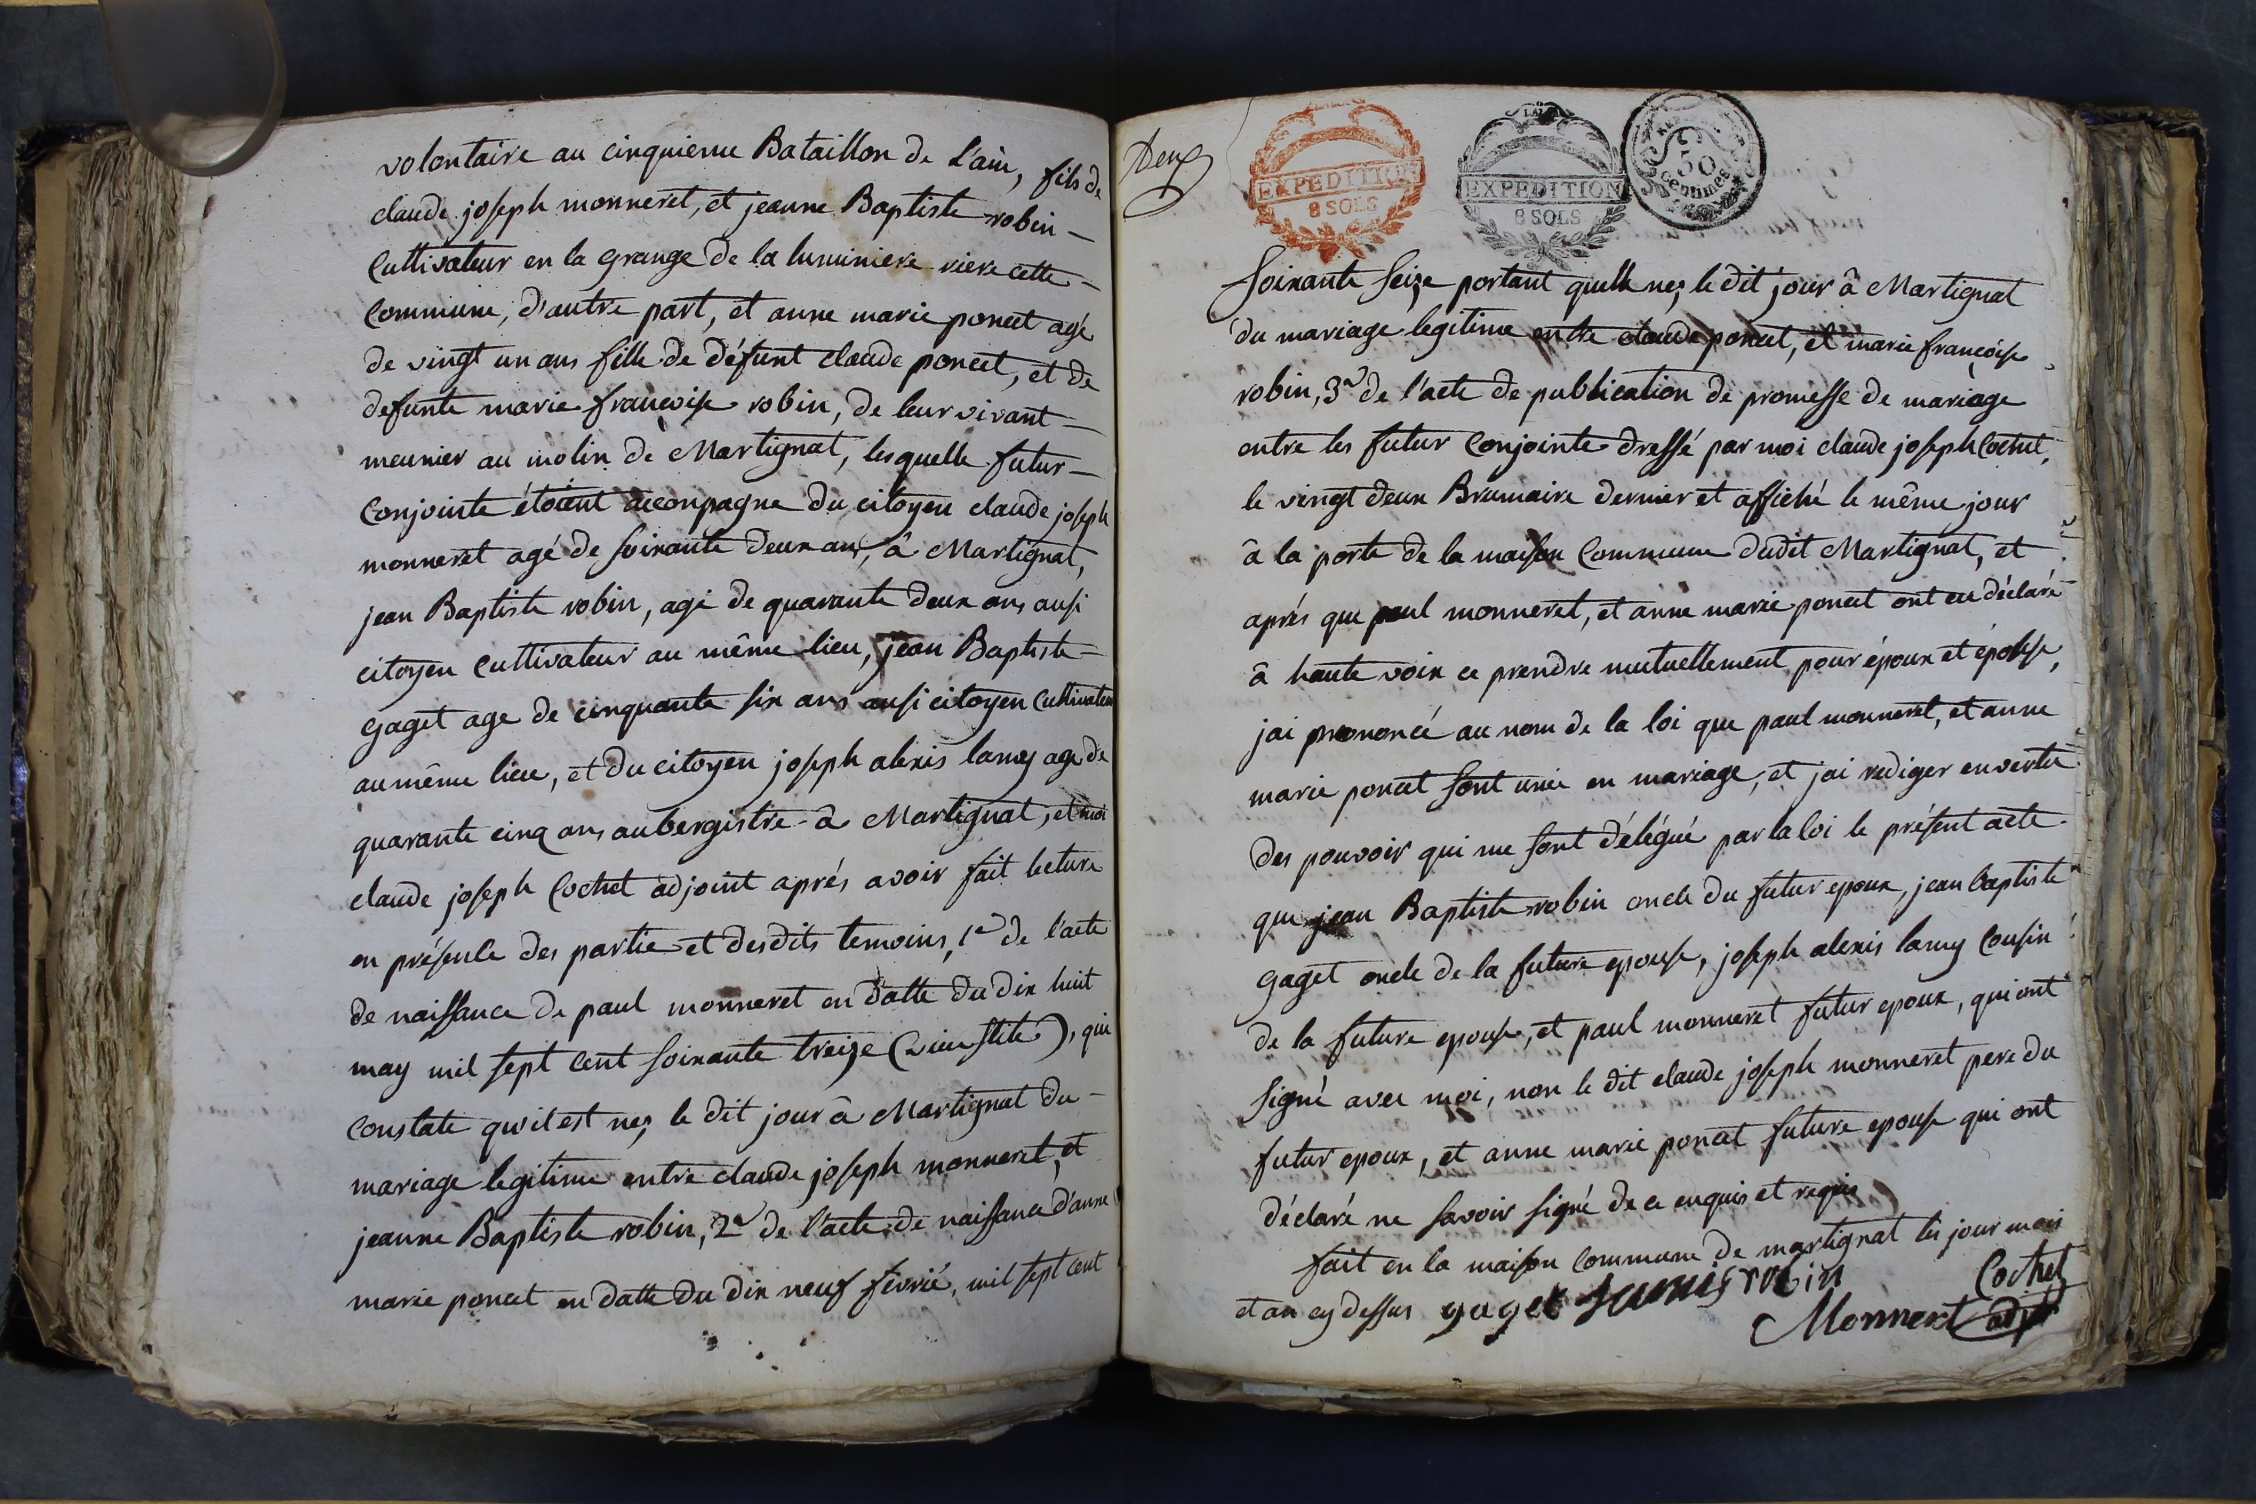 volontaire au cinquieme Bataillon de L'ain, fils de
claude joseph monneret, et jeanne Baptiste robin –
Cultivateur en la grange de la luminiere riere cette –
Commune, d'autre part, et anne marie poncet agé
de vingt un ans fille de défunt claude poncet, et de
defunte marie françoise robin, de leur vivant –
meunier au molin de Martignat, lesquelle futur –
Conjointe étoient accompagne du citoyen claude joseph
monneret agé de soixante deux ans, à Martignat,
jean Baptiste robin, agé de quarante deux ans ausi
citoyen cultivateur au même lieu, jean Baptiste –
gaget age de cinquante six ans ausi citoyen Cultivateur
au même lieu, et du citoyen joseph alexis lamy age de
quarante cinq ans aubergistre à Martignat, et moi
claude joseph Cochet adjoint aprés avoir fait lecture
en présence des partie et desdits temoins, 1º de l'acte
de naissance de paul monneret en datte du dix huit
may mil sept cent soixante treize (vieu stile), qui
Constate qu'il est nez le dit jour à Martignat du –
mariage legitime entre claude joseph monneret, et
jeanne Baptiste robin, 2º de l'acte de naissance d'anne
marie poncet en datte du dix neuf févrié, mil sept cent
Deux
EXPEDITION
8 SOLS
EXPEDITION
8 SOLS
50
Centimes
Soixante Seize portant quelle nez le dit jour à Martignat
du mariage legitime entre claude poncet, et marie françoise
robin, 3º de l'acte de publication de promesse de mariage
entre les futur Conjointe dressé par moi claude joseph Cochet,
le vingt deux Brumaire dernier et affiché le même jour
à la porte de la maison Commune dudit Martignat, et
aprés que paul monneret, et anne marie poncet ont eu déclaré
à haute voix ce prendre mutuellement pour époux et épouse,
jai prononcé au nom de la loi que paul monneret, et anne
marie poncet sont unie en mariage, et jai rediger en vertu
des pouvoir qui me sont délégué par la loi le présent acte
que jean Baptiste robin oncle du futur epoux, jean baptiste
gaget oncle de la future epouse, joseph alexis lamy Cousin
de la future epouse, et paul monneret futur epoux, qui ont
signé avec moi, non le dit claude joseph monneret pere du
futur epoux, et anne marie poncet future epouse qui ont
déclaré ne savoir signé de ce enquis et requis
fait en la maison Commune de martignat les jour mois
et an cy dessus gaget robin Cochet
Monneret adjt